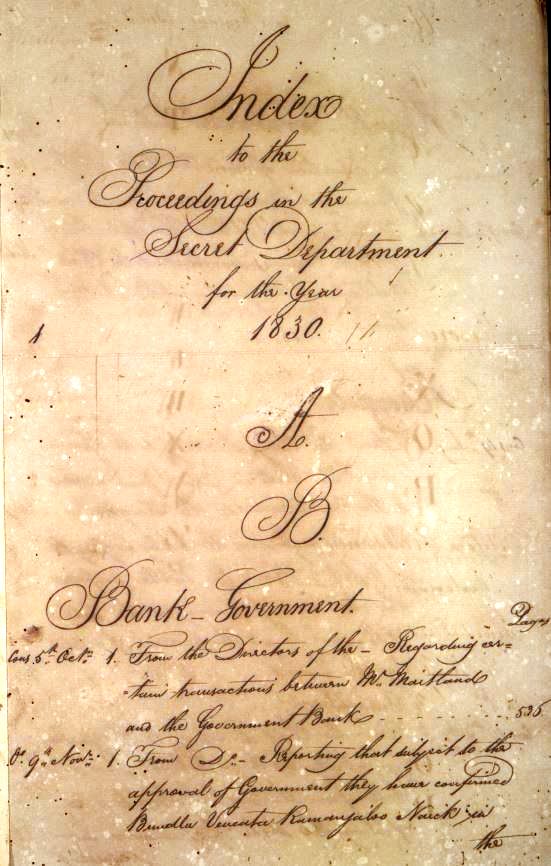 Index
to the
Proceedings in the
Secret Department
for the Year
1830.
A.
B.
Bank - Government.
Pages
Cons. 5th Octr. 1. From the Directors of the - Regarding cer-
-tain transactions between Mr. Maitland
and the Government Bank - - - - - - 535
Do. 9th Novr. 1. From Do. - Reporting that subject to the
approval of Government they have confirmed
Bundla Vencata Ramanjaloo Naick in
the